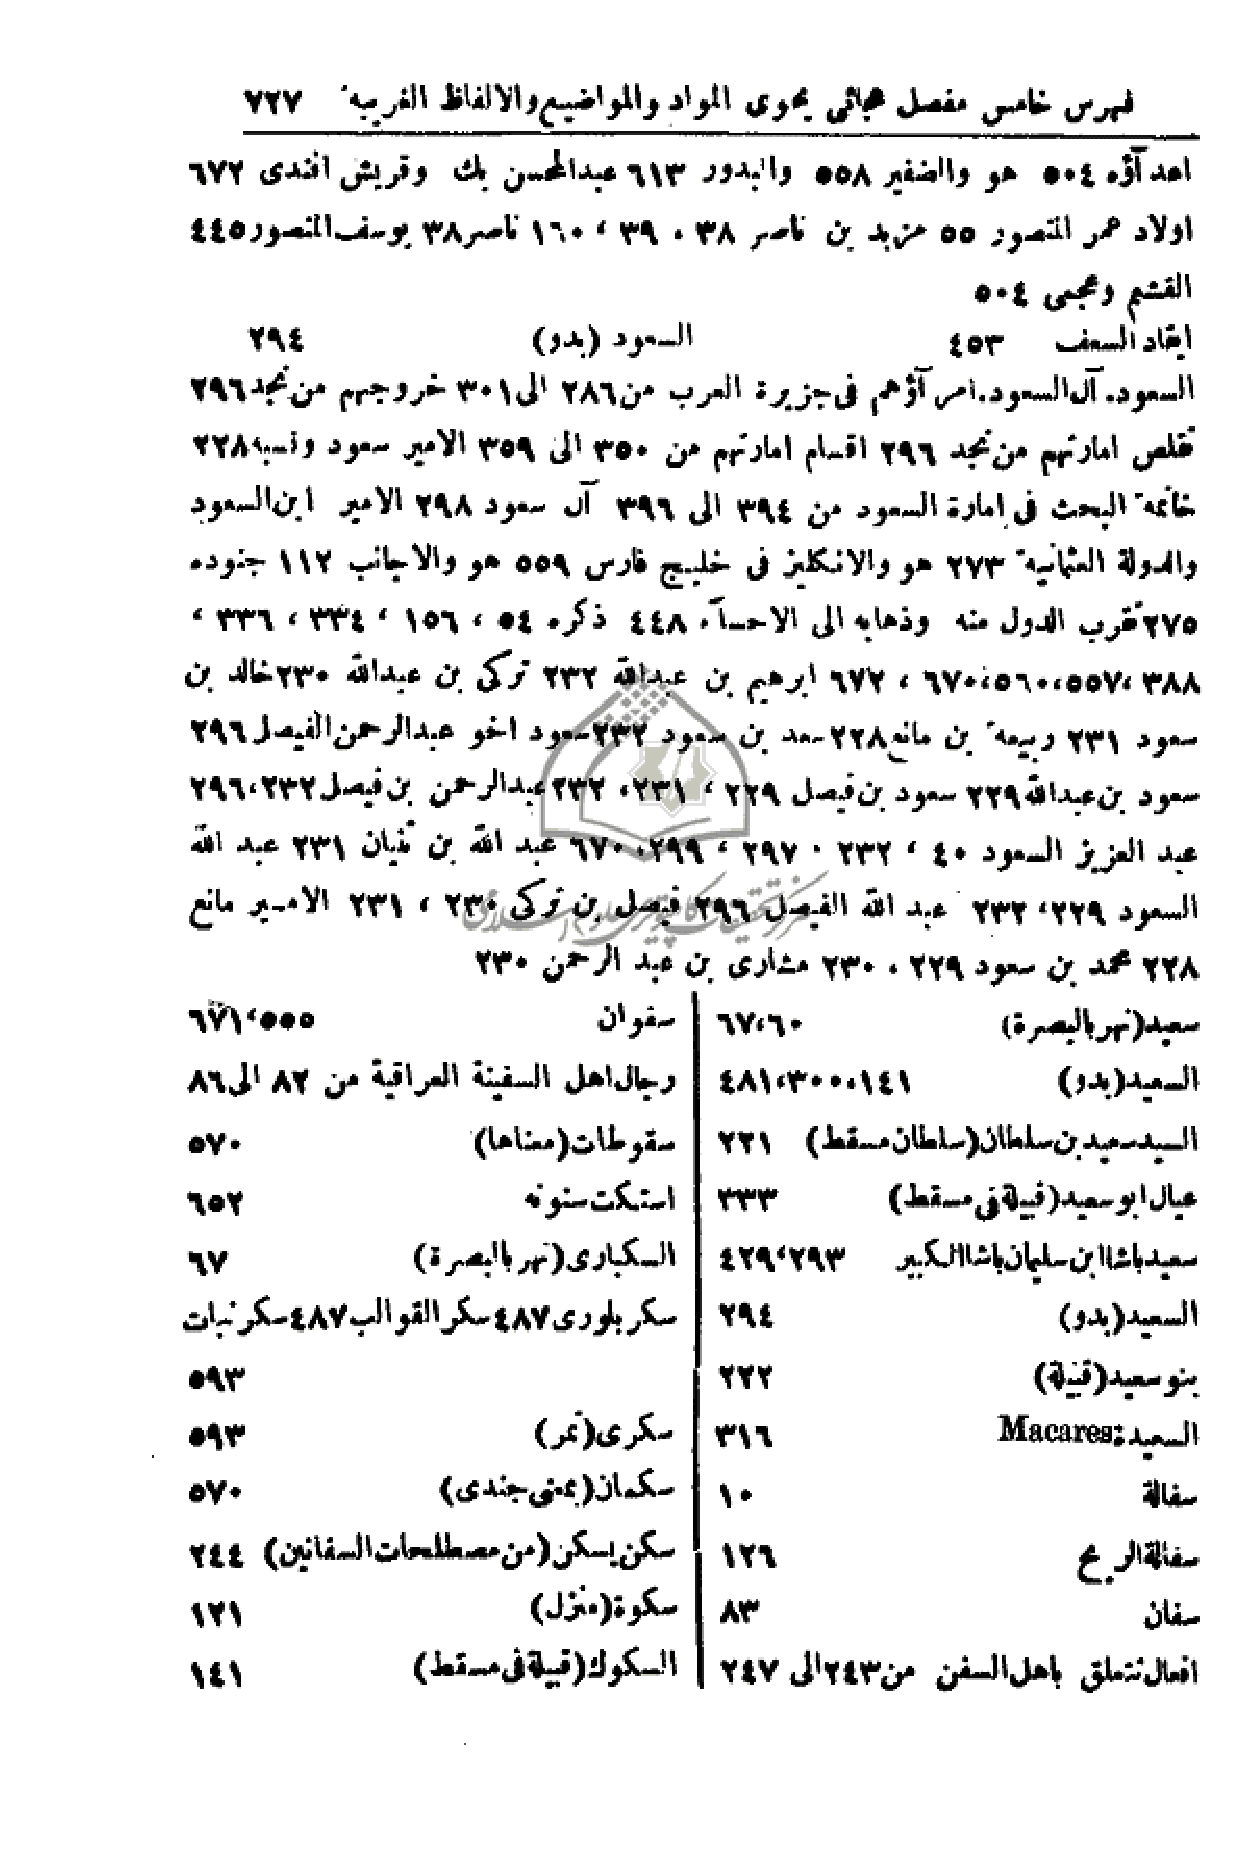 فهرس خامس مفصل هجائي يحوي المواد والمواضيع والالفاظ الغريبة ٧٢٧
اعدآؤه ٥٠٤ هو والضفير ٥٥٨ والبدور ٦١٣ عبدالمحسن بك وقريش افندى ٦٧٢
اولاد عمر المنصور ٥٥ مزيد بن ناصر ٣٨ ، ٣٩ ، ١٦٠ ناصر ٣٨ يوسف المنصور ٤٤٥
القشم وعجمى ٥٠٤
ايقاد السعف ٤٥٣ السعود (بدو) ٢٩٤
السعود. آل السعود. امرآؤهم فى جزيرة العرب من ٢٨٦ الى ٣٠١ خروجهم من نجد ٢٩٦
تقلص امارتهم من نجد ٢٩٦ اقسام امارتهم من ٣٥٠ الى ٣٥٩ الامير سعود ونسبه ٢٢٨
خاتمة البحث فى امارة السعود من ٣٩٤ الى ٣٩٦ آل سعود ٢٩٨ الامير ابن السعود
والدولة العثمانية ٢٧٣ هو والانكليز فى خليج فارس ٥٥٩ هو والاجانب ١١٢ جنوده
٢٧٥ تقرب الدول منه وذهابه الى الاحسآء ٤٤٨ ذكره ٥٤ ، ١٥٦ ، ٣٣٤ ، ٣٣٦ ،
٣٨٨ ،٥٥٧،٥٦٠،٦٧٠ ، ٦٧٢ ابرهيم بن عبدالله ٢٣٢ تركى بن عبدالله ٢٣٠ خالد بن
سعود ٢٣١ ربيعة بن مانع ٢٢٨ سعد بن سعود ٢٣٢ سعود اخو عبدالرحمن الفيصل ٢٩٦
سعود بن عبدالله ٢٢٩ سعود بن فيصل ٢٢٩ ، ٢٣١، ٢٣٢ عبدالرحمن بن فيصل ٢٣٢،٢٩٦
عبد العزيز السعود ٤٠ ، ٢٣٢ ، ٢٩٧ ، ٢٩٩، ٦٧٠ عبد الله بن ثنيان ٢٣١ عبد الله
السعود ٢٢٩، ٢٣٢ عبد الله الفيصل ٢٩٦ فيصل بن تركى ٢٣٠ ، ٢٣١ الامير مانع
٢٢٨ محمد بن سعود ٢٢٩ ، ٢٣٠ مشارى بن عبد الرحمن ٢٣٠
سعيد (نهر بالبصرة) ٦٧،٦٠
السعيد (بدو) ٤٨١،٣٠٠،١٤١
السيد سعيد بن سلطان (سلطان مسقط) ٢٢١
عيال ابو سعيد (قبيلة فى مسقط) ٣٣٣
سعيد باشا ابن سليمان باشا الكبير ٤٢٩،٢٩٣
السعيد (بدو) ٢٩٤
بنو سعيد (قبيلة) ٢٢٢
السعيدة Macares ٣١٦
سفالة ١٠
سفالة الريح ١٢٦
سفان ٨٣
افعال تتعلق باهل السفن من ٢٤٣ الى ٢٤٧
سفوان ٦٧١،٥٥٥
رجال اهل السفينة العراقية من ٨٢ الى ٨٦
سقوطات (معناها) ٥٧٠
استكت سنونه ٦٥٢
السكبارى (نهر بالبصرة) ٦٧
سكر بلورى ٤٨٧ سكر القوالب ٤٨٧ سكر نبات
٥٩٣
سكرى (تمر) ٥٩٣
سكمان (بمعنى جندى) ٥٧٠
سكن يسكن (من مصطلحات السفانين) ٢٤٤
سكوة (منزل) ١٢١
السكوك (قبيلة فى مسقط) ١٤١